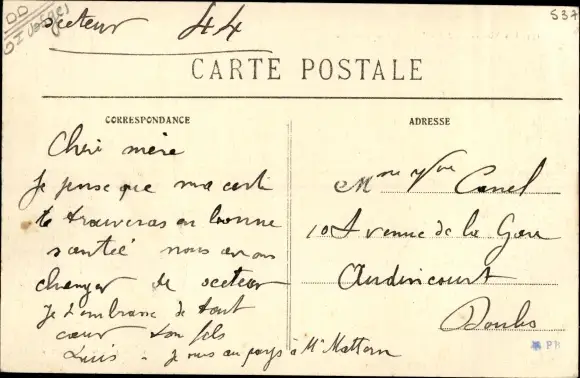 DD
01 Vosges
secteur 44
537
CARTE POSTALE
CORRESPONDANCE
ADRESSE
Cheri mère
Je pense que ma carte
te trouveras en bonne
santié nous avons
changer de secteur
Je t'embrasse de tout
cœur ton fils
Louis à Mr Mattern
Mme Vve Canel
10 Avenue de la Gare
Audincourt
Doubs
PK